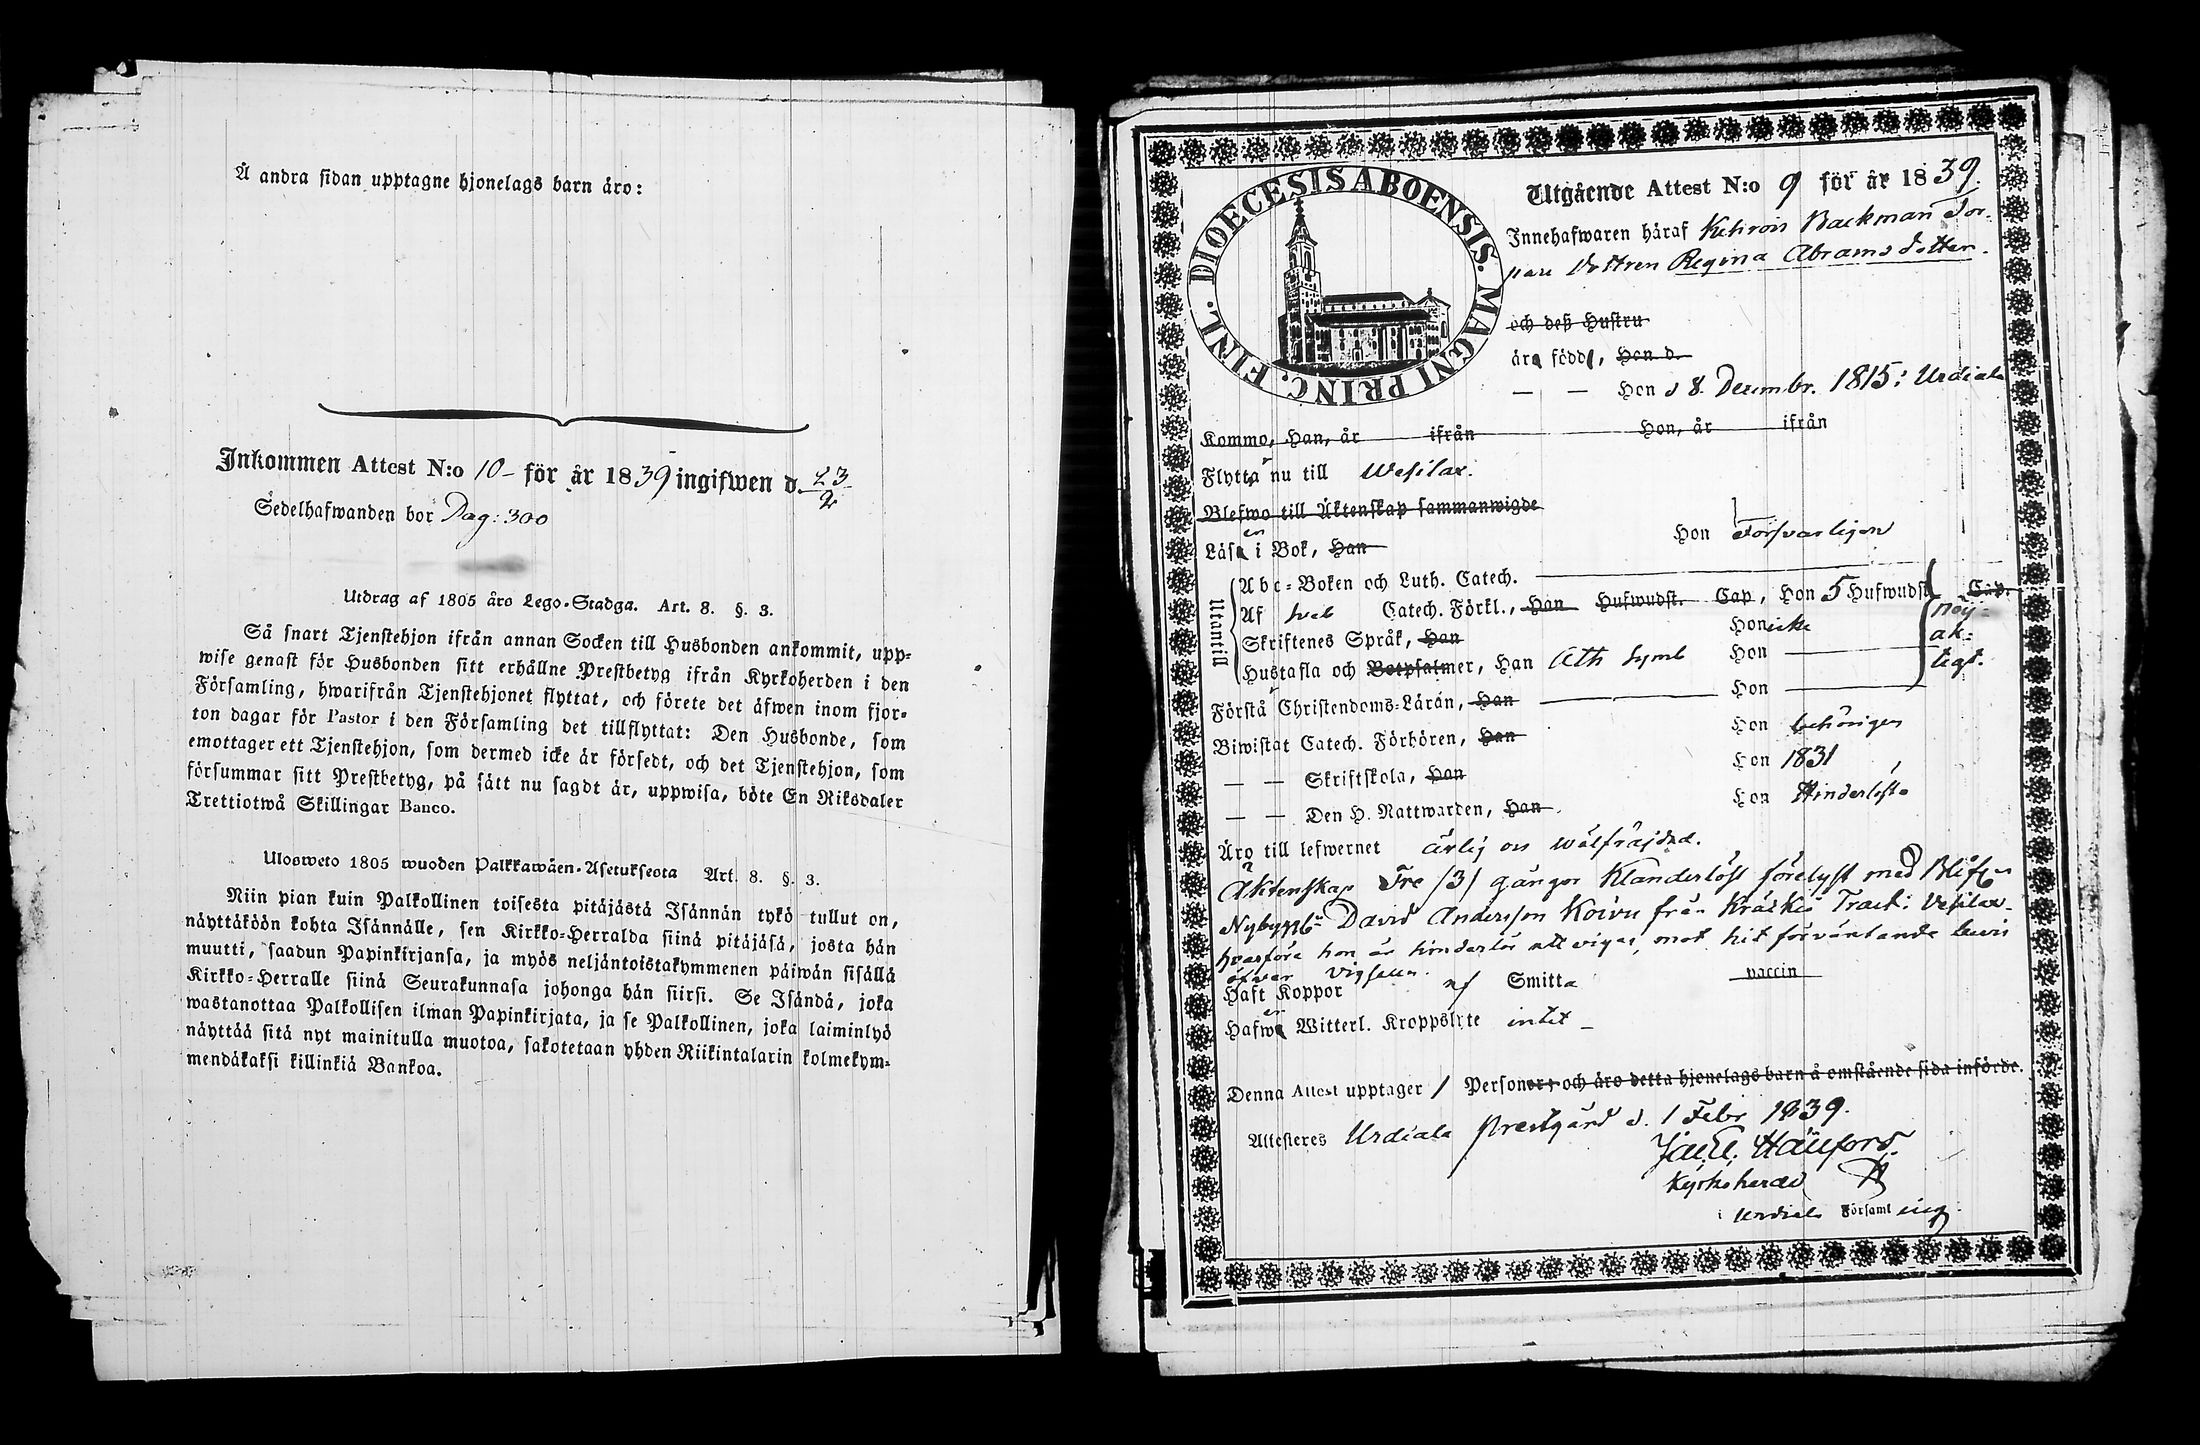 Å andra sidan upptagne hjonelags barn äro:
Inkommen Attest N:o 10 - för år 1839 ingifwen d. 23/2
Sedelhafwanden bor Pag: 300
Utdrag af 1805 års Lego-Stadga. Art. 8. §. 3.
Så snart Tjenstehjon ifrån annan Socken till Husbonden ankommit, upp-
wise genast för Husbonden sitt erhållne Prestbetyg ifrån Kyrkoherden i den
Församling, hwarifrån Tjenstehjonet flyttat, och förete det äfwen inom fjor-
ton dagar för Pastor i den Församling det tillflyttat: Den Husbonde, som
emottager ett Tjenstehjon, som dermed icke är försedt, och det Tjenstehjon, som
försummar sitt Prestbetyg, på sätt nu sagdt är, uppwisa, böte En Riksdaler
Trettiotwå Skillingar Banco.
Ulosweto 1805 wuoden Palkkawäen-Asetuksesta Art. 8. §. 3.
Niin pian kuin Palkollinen toisesta pitäjästä Isännän tykö tullut on,
näyttäköön kohta Isännälle, sen Kirkko-Herralda siinä pitäjäsä, josta hän
muutti, saadun Papinkirjansa, ja myös neljäntoistakymmenen päiwän sisällä
Kirkko-Herralle siinä Seurakunnasa johonga hän siirsi. Se Isändä, joka
wastanottaa Palkollisen ilman Papinkirjata, ja se Palkollinen, joka laiminlyö
näyttää sitä nyt mainitulla muotoa, sakotetaan yhden Riikintalarin kolmekym-
mendäkaksi killinkiä Bankoa.
DIOECESIS ABOENSIS. MAGNI PRINC. FINL.
Utgående Attest N:o 9 för år 1839.
Innehafwaren häraf Backman Tor-
pare dottren Regina Abramsdotter.
och deß Hustru
äro född, Han d.
— — Hon d 8. Decembr. 1815 i Urdiala
Kommo, Han, år ifrån Hon, år ifrån
Flytta nu till Wesilax.
Blefwo till Äktenskap sammanwigde
Läsa i Bok, Han Hon Försvarligen
Utantill
Abc-Boken och Luth. Catech.
Af Sveb Catech. Förkl., Han Hufwudst. Cap, Hon 5 Hufwudst. Cap.
Skriftenes Språk, Han Hon icke nöj-
Hustafla och Botpsalmer, Han Ath Symb Hon ak-
tigt.
Förstå Christendoms-Läran, Han Hon
Biwistat Catech. Förhören, Han Hon behörigen
— — Skriftskola, Han Hon 1831
— — Den H. Nattwarden, Han Hon Hinderlöst
Äro till lefwernet ärlig och wälfräjdad.
Äktenskap Tre /3/ gångor Klanderlöst förelyst med
Nybygg. David Andersson Koivu från Kräckiö Tract i Vesilax
hvarföre hon är hinderlös att vigas, mot hit förväntande bevis
öfver vigseln.
Haft Koppor af Smitta vaccin
Hafwa Witterl. Kroppslyte intet -
Denna Attest upptager 1 Personer: och äro detta hjonelags barn å omstående sida införde.
Attesteres Urdiala Prestgård d. 1 Febr 1839.
Hällfors.
Kyrkoherde
i Urdiala Församling.